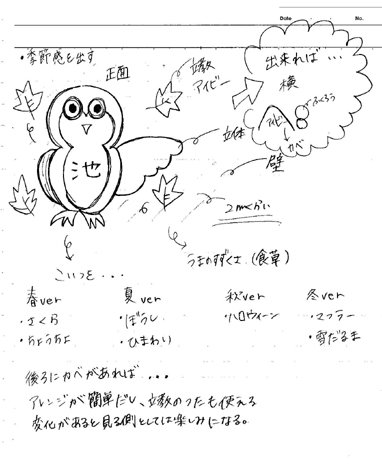 Date
No.
・季節感を出す
正面
立教
アイビー
出来れば・・・
横
ふくろう
アイビー
カベ
立体
壁
池
2mくらい
うまのすずくさ(食草)
こいつを・・・
春ver
・さくら
・ちょうちょ
夏ver
・ぼうし
・ひまわり
秋ver
・ハロウィーン
冬ver
・マフラー
・雪だるま
後ろにカベがあれば・・・
アレンジが簡単だし、立教のつたも使える
変化があると見る側としては楽しみになる。